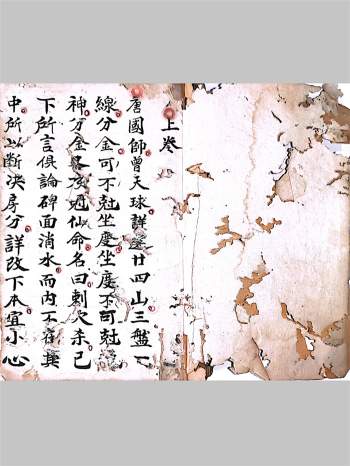 上卷
唐國師曾天球詳廿四山三盤
線分金可不尅坐度坐度不可尅
神分金仙命名曰刺穴杀已
下所言俱論碑面消水而內不存其
中所以斷決房分詳改下本宜小心